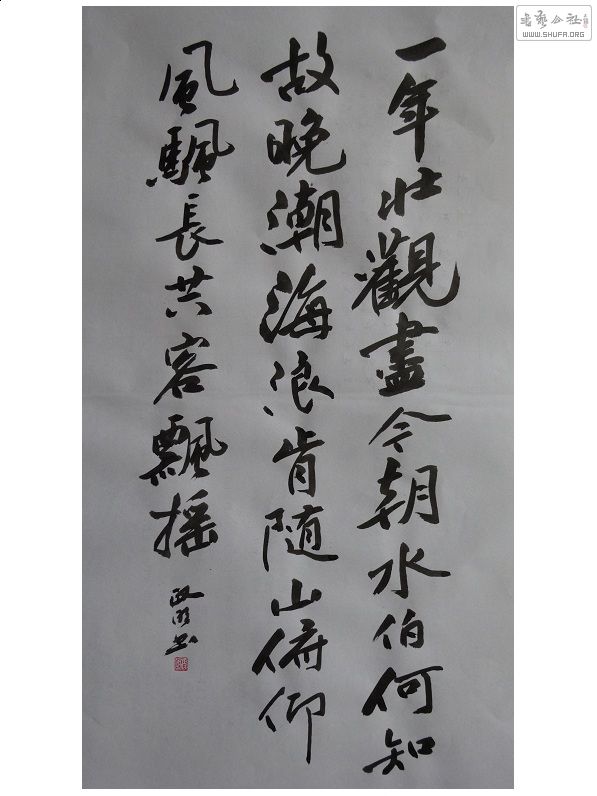 一年壯觀盡今朝水伯何知
故晚潮海浪肯随山俯仰
風颿長共客飄摇
书艺公社
WWW.SHUFA.ORG